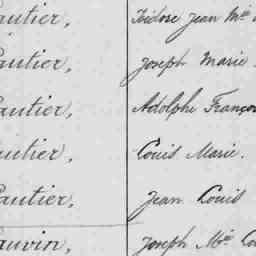 autier, Isidore Jean Mie
autier, Joseph Marie
autier, Adolphe Franço
autier, Louis Marie.
autier, Jean Louis
auvin, Joseph Mie